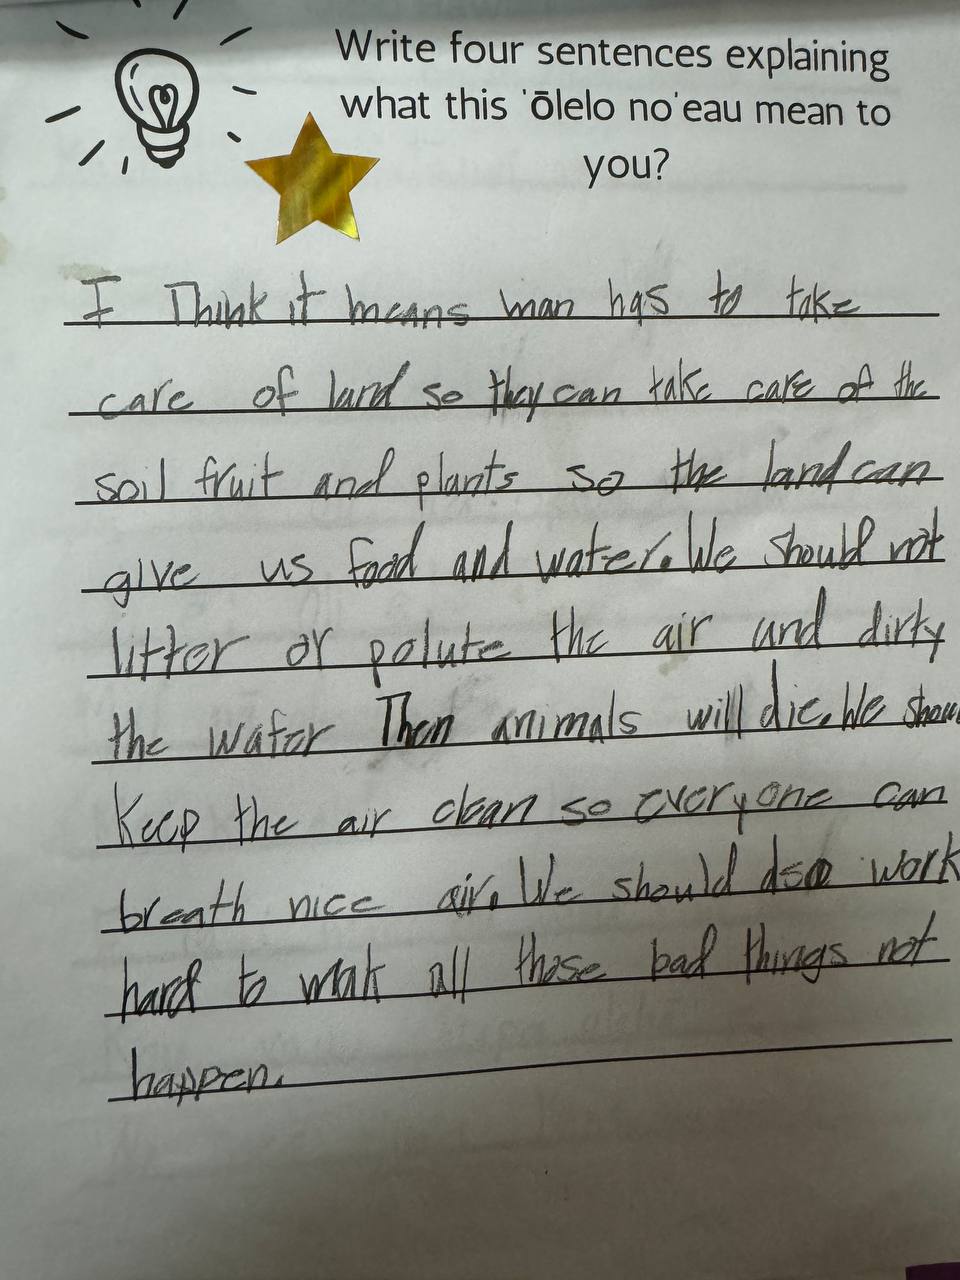 Write four sentences explaining
what this 'ōlelo no'eau mean to
you?
I Think it means man has to take
care of land so they can take care of the
soil fruit and plants so the land can
give us food and water. We should not
litter or polute the air and dirty
the water Then animals will die. We shou
Keep the air clean so everyone can
breath nice air. We should also work
hard to mak all those bad things not
happen.